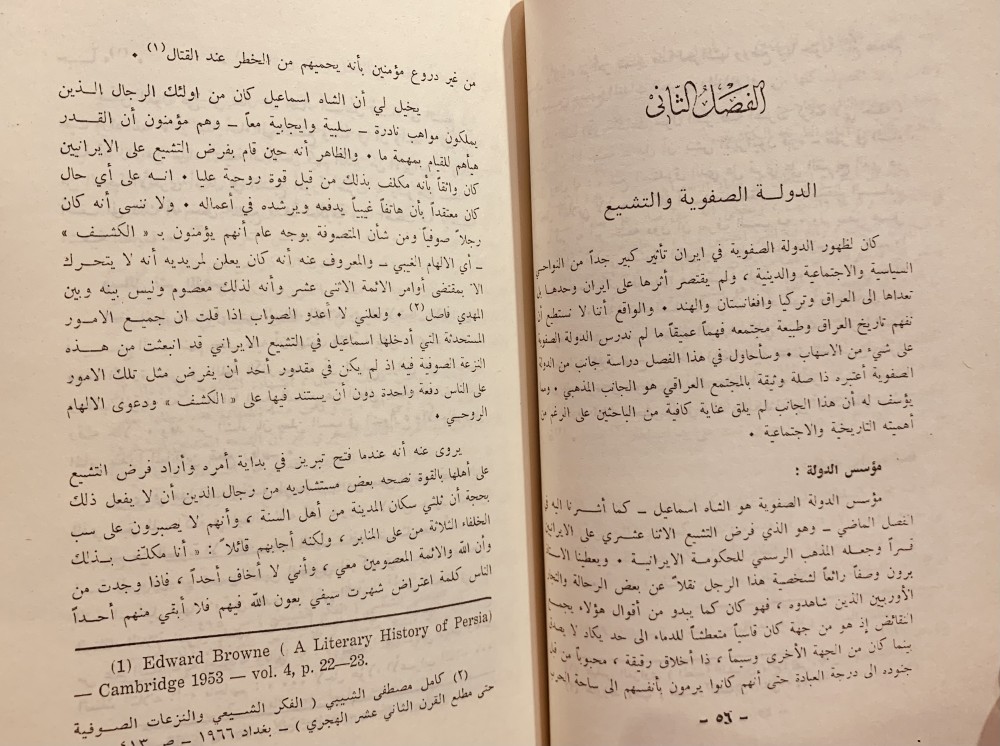 الفصل الثاني
الدولـــة الصفوية والتشيع
كان لظهور الدولة الصفوية في ايران تأثير كبير جداً من النواحي
السياسية والاجتماعية والدينية ، ولم يقتصر أثرها على ايران وحدها بل
تعداها الى العراق وتركيا وافغانستان والهند ٠ والواقع أننا لا نستطيع أن
نفهم تاريخ العراق وطبيعة مجتمعه فهماً عميقاً ما لم ندرس الدولة الصفوية
على شيء من الاسهاب ٠ وسأحاول في هذا الفصل دراسة جانب من الدولة
الصفوية أعتبره ذا صلة وثيقة بالمجتمع العراقي هو الجانب المذهبي ٠ ومما
يؤسف له أن هذا الجانب لم يلق عناية كافية من الباحثين على الرغم من
أهميته التاريخية والاجتماعية ٠
مؤسس الدولة :
مؤسس الدولة الصفوية هو الشاه اسماعيل ــ كما أشـــرنا اليه في
الفصل الماضي ــ وهو الذي فرض التشيع الاثنا عشـــري على الايرانيين
قســراً وجعلــه المذهب الرسمي للحكومــة الايرانيــة ٠ ويعطينا الاستاذ
برون وصفاً رائعاً لشخصية هذا الرجل نقلاً عن بعض الرحالة والتجار
الأوربيين الذين شاهدوه ، فهو كان كما يبدو من أقوال هؤلاء يجمــع
النقائض إذ هو من جهة كان قاسياً متعطشاً للدماء الى حد يكاد لا
بينما كان من الجهة الأخرى وسيماً ، ذا أخلاق رقيقة ، محبوباً من قبل
جنوده الى درجة العبادة حتى أنهم كانوا يرمون بأنفسهم الى ساحة الحرب
ــ ٥٦ ــ
من غير دروع مؤمنين بأنه يحميهم من الخطر عند القتال(١) ٠
يخيل لي أن الشاه اسماعيل كان من اولئك الرجال الـــذين
يملكون مواهب نادرة ــ سلبية وايجابية معاً ــ وهم مؤمنون أن القـــدر
هيأهم للقيام بمهمة ما ٠ والظاهر أنه حين قام بفرض التشيع على الايرانيين
كان واثقاً بأنه مكلف بذلك من قبل قوة روحية عليا ٠ انـــه على أي حال
كان معتقداً بأن هاتفاً غيبياً يدفعه ويرشده في أعماله ٠ ولا ننسى أنه كان
رجلاً صوفياً ومن شأن المتصوفة بوجه عام أنهم يؤمنون بـ « الكشـــف »
ــ أي الالهام الغيبي ــ والمعروف عنه أنه كان يعلن لمريديه أنه لا يتحـــرك
الا بمقتضى أوامر الائمة الاثنى عشر وأنه لذلك معصوم وليس بينه وبين
المهدي فاصل(٢) ٠ ولعلني لا أعدو الصواب اذا قلت ان جميـــع الامـــور
المستحدثة التي أدخلها اسماعيل في التشيع الايراني قد انبعثت من هـــذه
النزعة الصوفية فيه اذ لم يكن في مقدور أحد أن يفرض مثل تلك الامور
على الناس دفعة واحدة دون أن يستند فيها على « الكشف » ودعوى الالهام
الروحـــي ٠
يروى عنه أنه عندما فتح تبريز في بداية أمره وأراد فرض التشيع
على أهلها بالقوة نصحه بعض مستشاريه من رجال الدين أن لا يفعل ذلك
بحجة أن ثلثي سكان المدينة من أهل السنة ، وأنهم لا يصبرون على سب
الخلفاء الثلاثة من على المنابر ، ولكنه أجابهم قائلاً : « أنا مكلــف بـــذلك
وأن الله والائمة المعصومين معي ، وأني لا أخاف أحداً ، فاذا وجدت من
الناس كلمة اعتراض شهرت سيفي بعون الله فيهم فلا أبقي منهم أحـــداً
(1) Edward Browne ( A Literary History of Persia)
— Cambridge 1953 — vol. 4, p. 22—23.
(٢) كامل مصطفى الشيبي ( الفكر الشـــيعي والنزعات الصـــوفية
حتى مطلع القرن الثاني عشر الهجري ) ــ بغداد ١٩٦٦ ــ ص ٤١٣